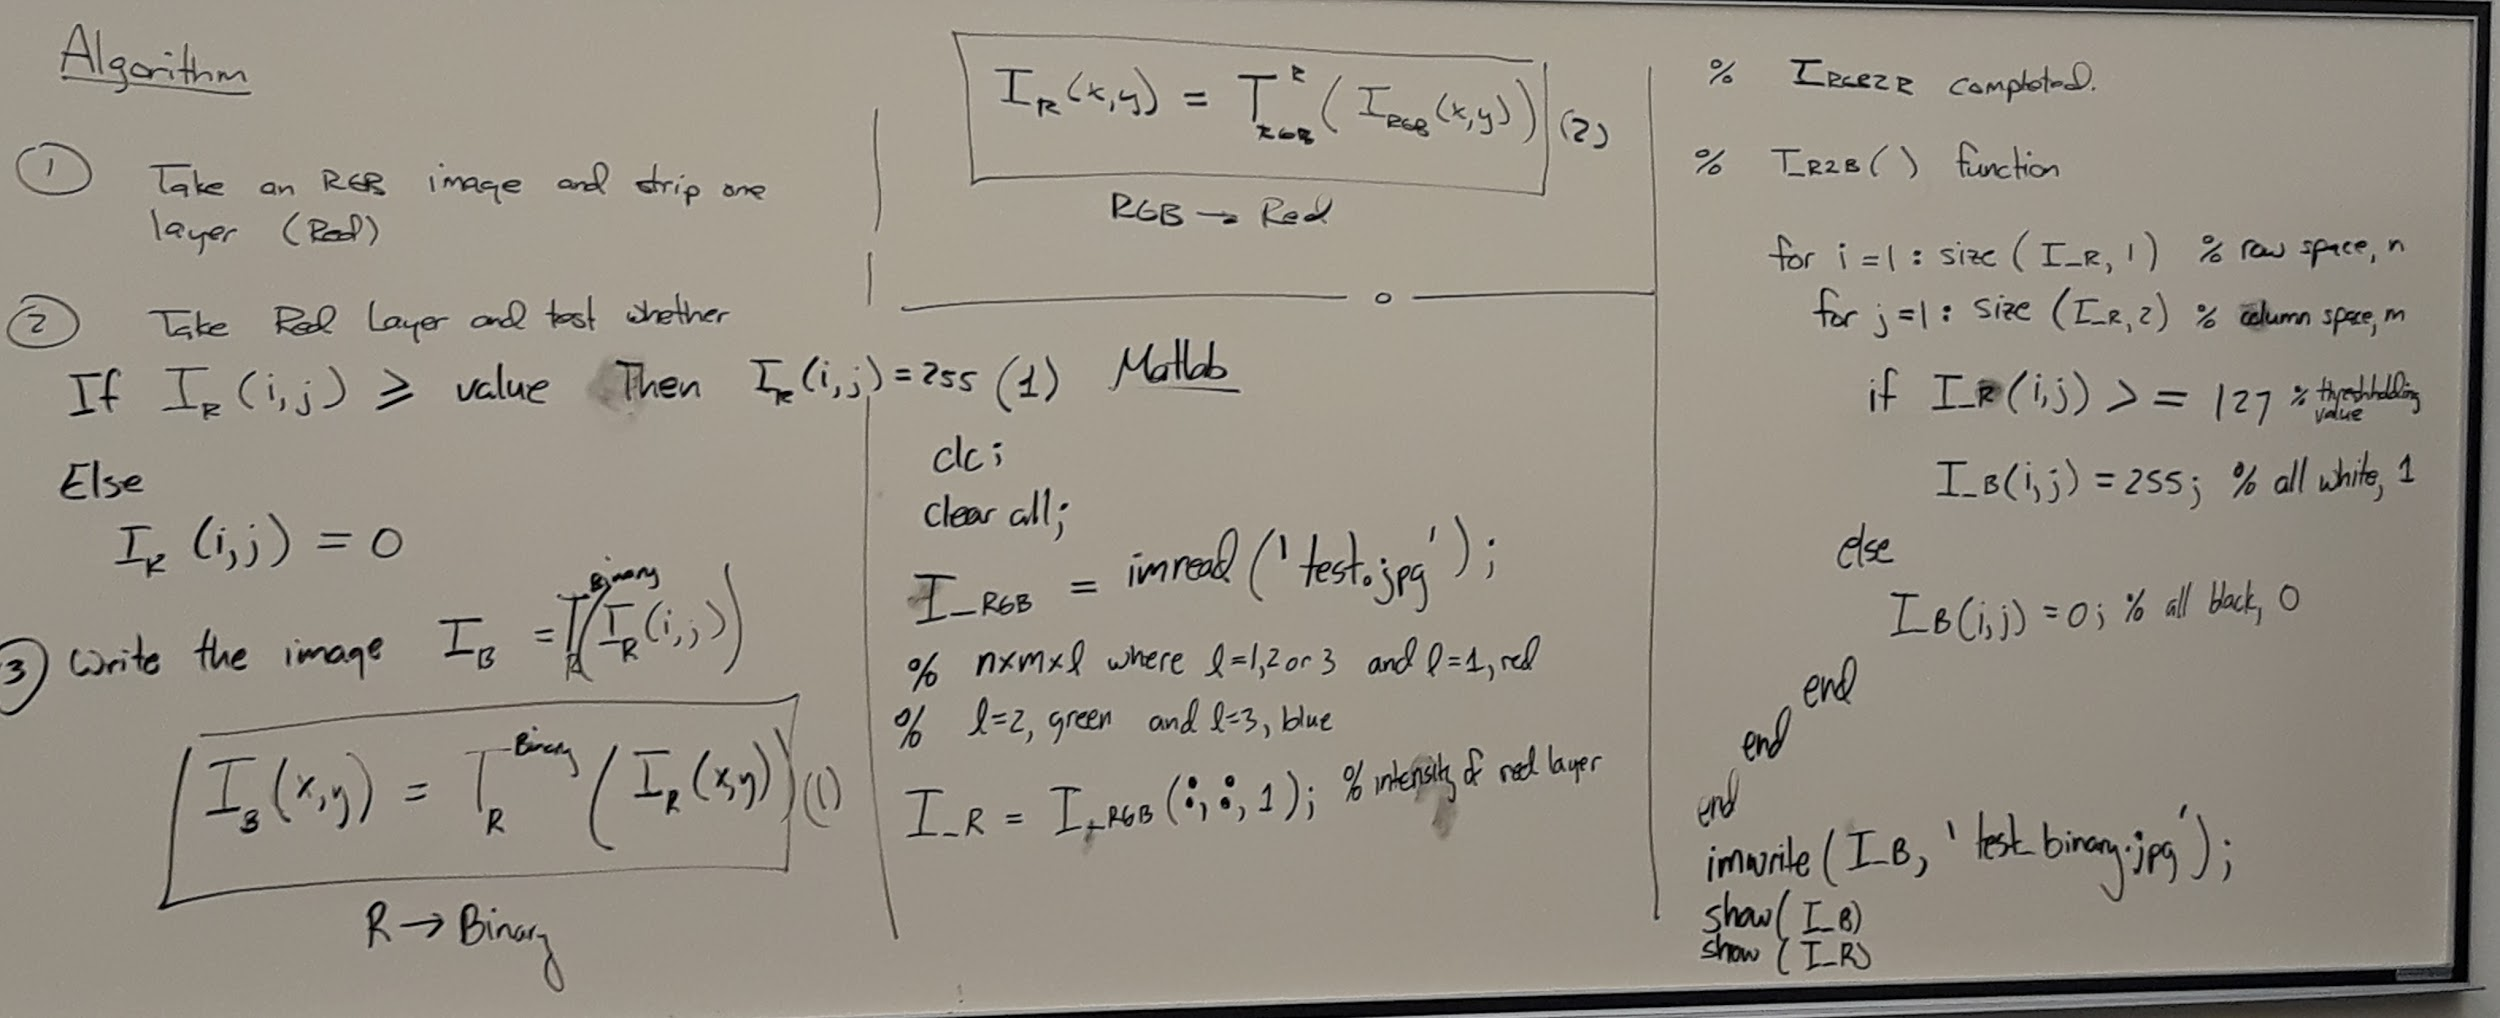 Algorithm
① Take an RGB image and strip one
layer (Red)
② Take Red Layer and test whether
If I_R (i,j) ⩾ value Then I_R (i,j) = 255 (1)
Else
I_R (i,j) = 0
③ Write the image I_B = T_R^Binary (I_R (i,j))
I_B (x,y) = T_R^Binary (I_R (x,y)) (1)
R → Binary
I_R (x,y) = T_RGB^R (I_RGB (x,y)) (2)
RGB → Red
Matlab
clc;
clear all;
I_RGB = imread('test.jpg');
% n×m×l where l=1,2 or 3 and l=1, red
% l=2, green and l=3, blue
I_R = I_RGB (:,:,1); % intensity of red layer
% I_RGB2R completed.
% I_R2B( ) function
for i=1 : size (I_R, 1) % row space, n
for j=1 : size (I_R, 2) % column space, m
if I_R (i,j) >= 127 % threshholding
value
I_B(i,j) = 255; % all white, 1
else
I_B(i,j) = 0; % all black, 0
end
end
end
imwrite (I_B, 'test_binary.jpg');
show( I_B)
show ( I_R)